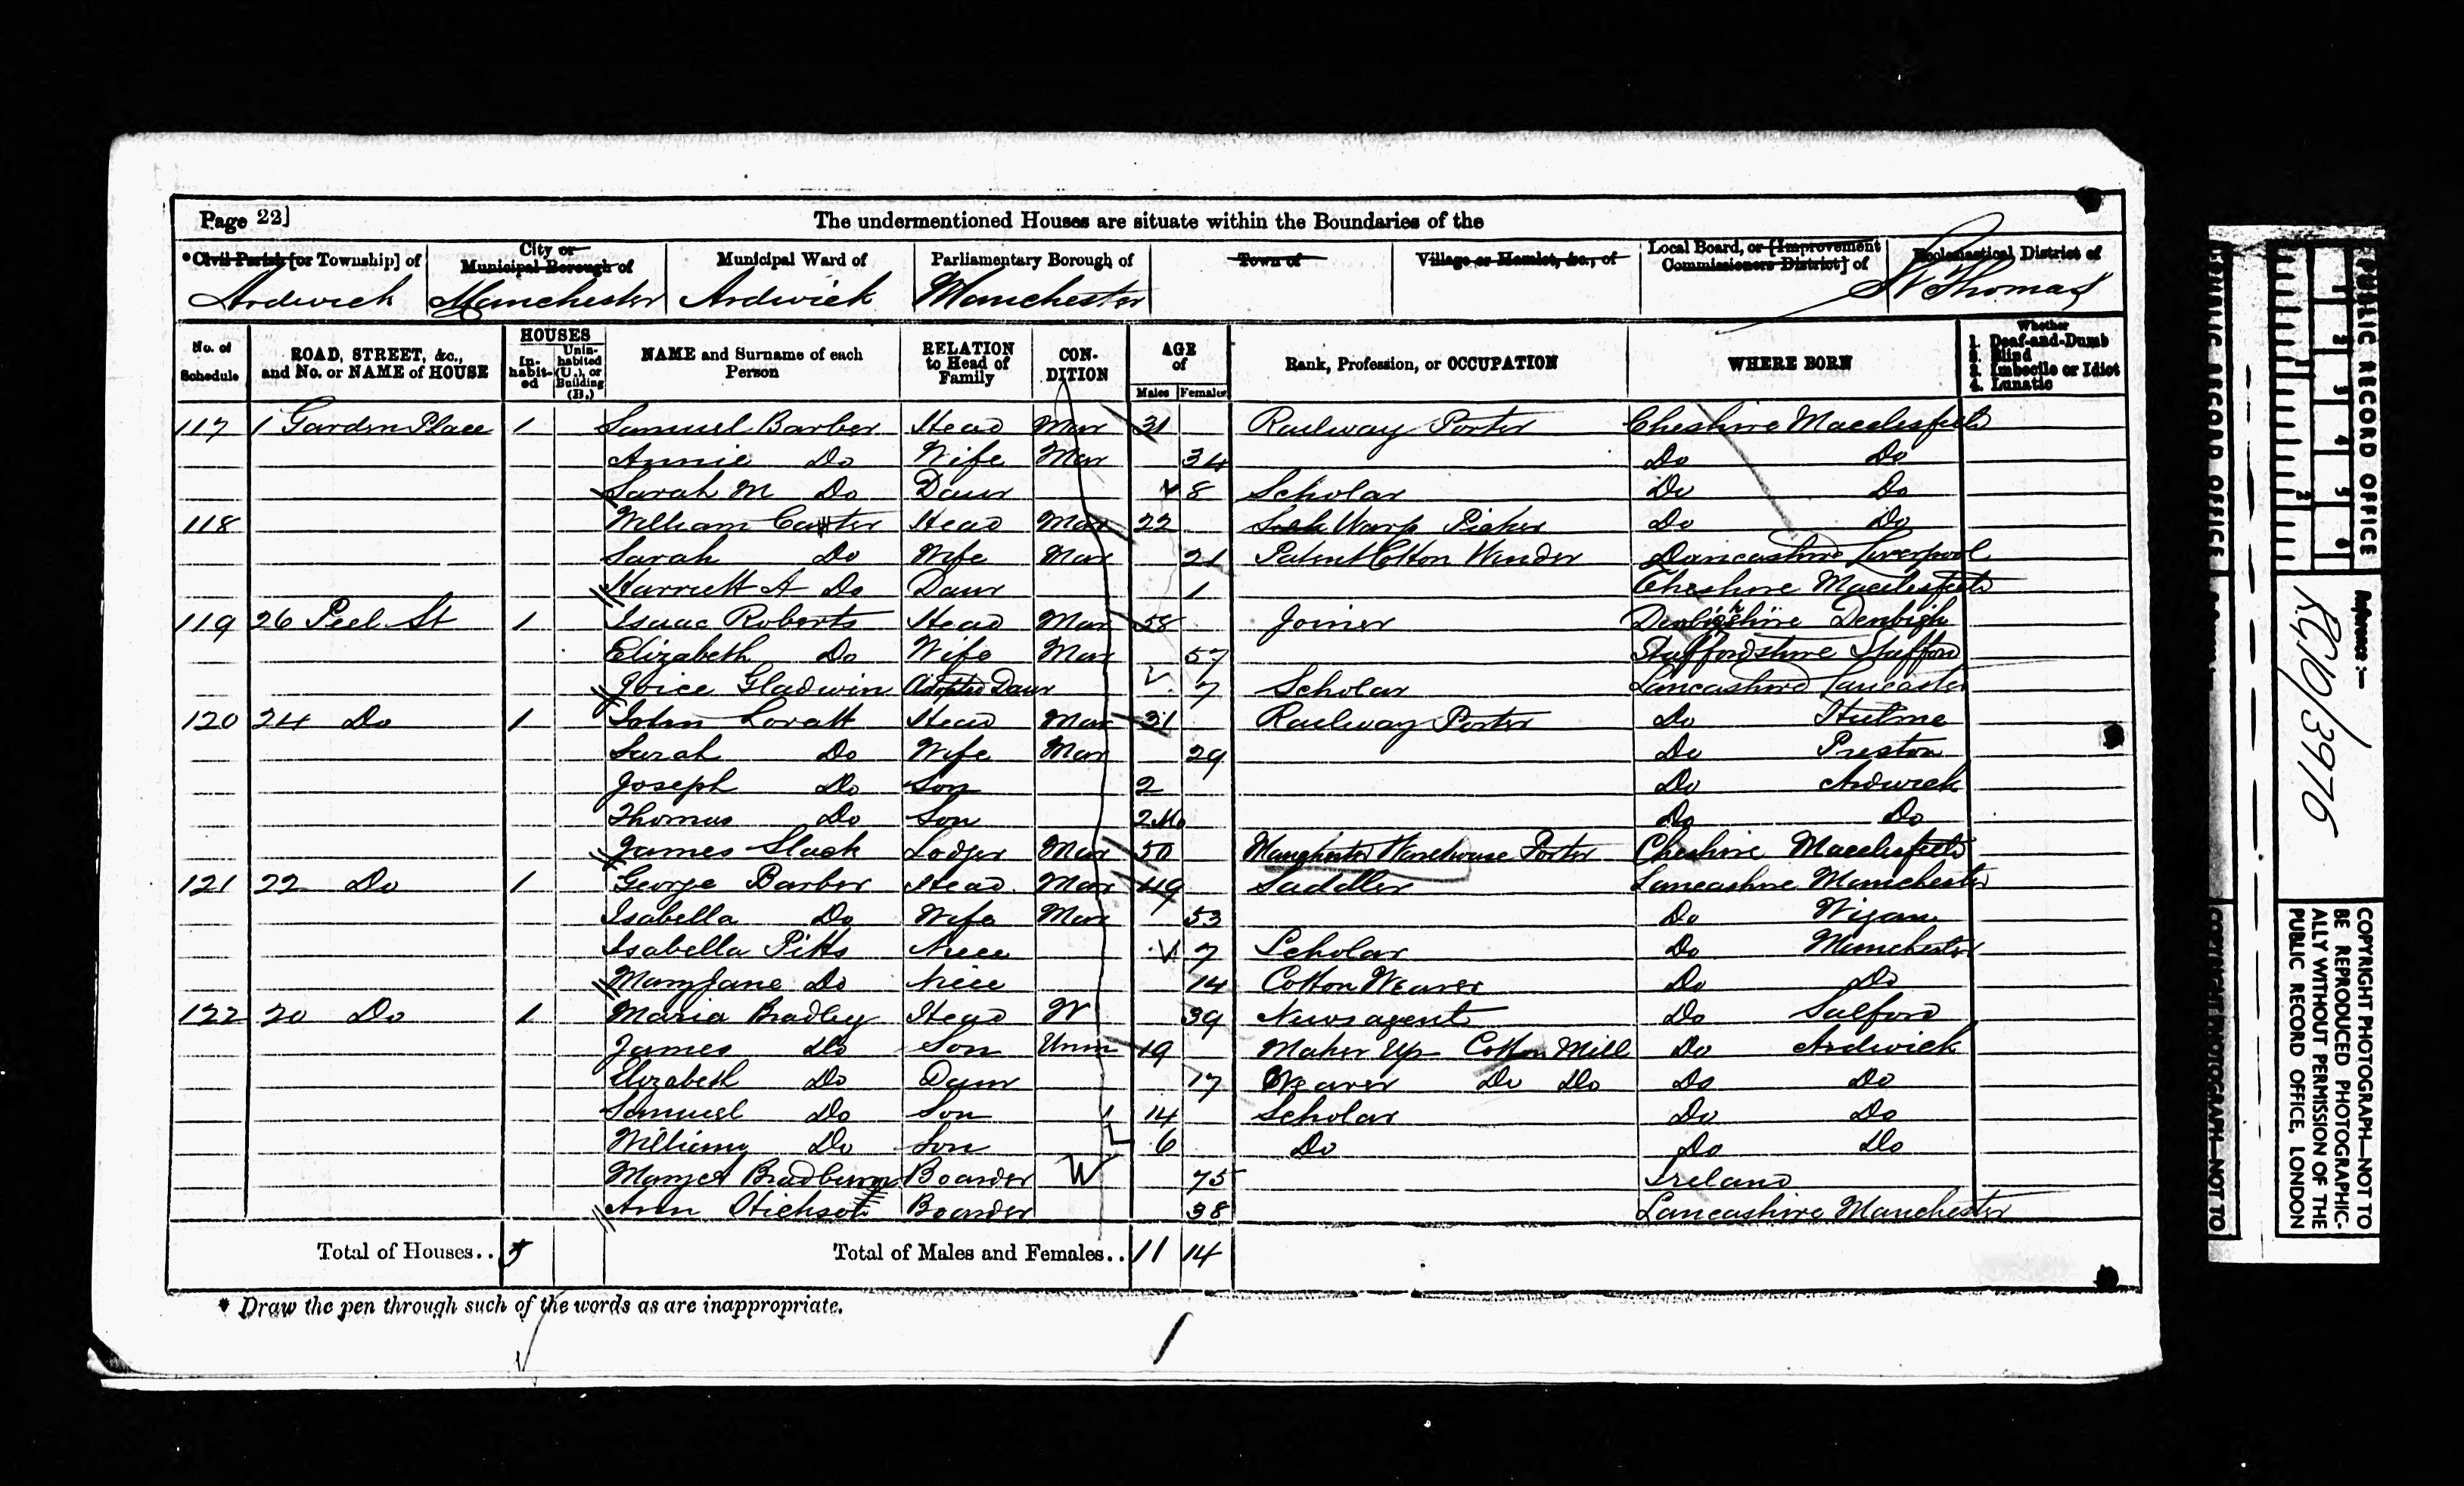 Page 22]
The undermentioned Houses are situate within the Boundaries of the
*Civil Parish [or Township] of
City or Municipal Borough of
Municipal Ward of
Parliamentary Borough of
Town of
Village or Hamlet, &c., of
Local Board, or [Improvement Commissioners District] of
Ecclesiastical District of
Ardwick Manchester Ardwick Manchester St Thomas
No. of Schedule
ROAD, STREET, &c., and No. or NAME of HOUSE
HOUSES
In-habit-ed
Unin-habited (U.), or Building (B.)
NAME and Surname of each Person
RELATION to Head of Family
CON-DITION
AGE of
Males Females
Rank, Profession, or OCCUPATION
WHERE BORN
Whether
1. Deaf-and-Dumb
2. Blind
3. Imbecile or Idiot
4. Lunatic
117 1 Garden Place 1 Samuel Barber Head Mar 31 Railway Porter Cheshire Macclesfield
Annie Do Wife Mar 34 Do Do
Sarah M Do Daur 8 Scholar Do Do
118 William Carter Head Mar 22 Silk Warp Picker Do Do
Sarah Do Wife Mar 21 Patent Cotton Winder Lancashire Liverpool
Harriett A Do Daur 1 Cheshire Macclesfield
119 26 Peel St 1 Isaac Roberts Head Mar 58 Joiner Denbighshire Denbigh
Elizabeth Do Wife Mar 57 Staffordshire Stafford
Joice Gladwin Adopted Daur 7 Scholar Lancashire Lancaster
120 24 Do 1 John Lovatt Head Mar 31 Railway Porter Do Hulme
Sarah Do Wife Mar 29 Do Preston
Joseph Do Son 2 Do Ardwick
Thomas Do Son 2 Mo Do Do
James Slack Lodger Mar 50 Manchester Warehouse Porter Cheshire Macclesfield
121 22 Do 1 George Barber Head Mar 49 Saddler Lancashire Manchester
Isabella Do Wife Mar 53 Do Wigan
Isabella Pitts Niece 7 Scholar Do Manchester
Mary Jane Do Niece 14 Cotton Weaver Do Do
122 20 Do 1 Maria Bradley Head W 39 Newsagent Do Salford
James Do Son Unm 19 Maker Up Cotton Mill Do Ardwick
Elizabeth Do Daur 17 Weaver Do Do Do Do
Samuel Do Son 14 Scholar Do Do
William Do Son 6 Do Do Do
Bradburn Boarder W 75 Ireland
Ann Boarder 38 Lancashire Manchester
Total of Houses.. 5 Total of Males and Females.. 11 14
* Draw the pen through such of the words as are inappropriate.
PUBLIC RECORD OFFICE
1 2 3 4 5 6
Reference :-
RG10/3976
COPYRIGHT PHOTOGRAPH—NOT TO
BE REPRODUCED PHOTOGRAPHIC-
ALLY WITHOUT PERMISSION OF THE
PUBLIC RECORD OFFICE, LONDON